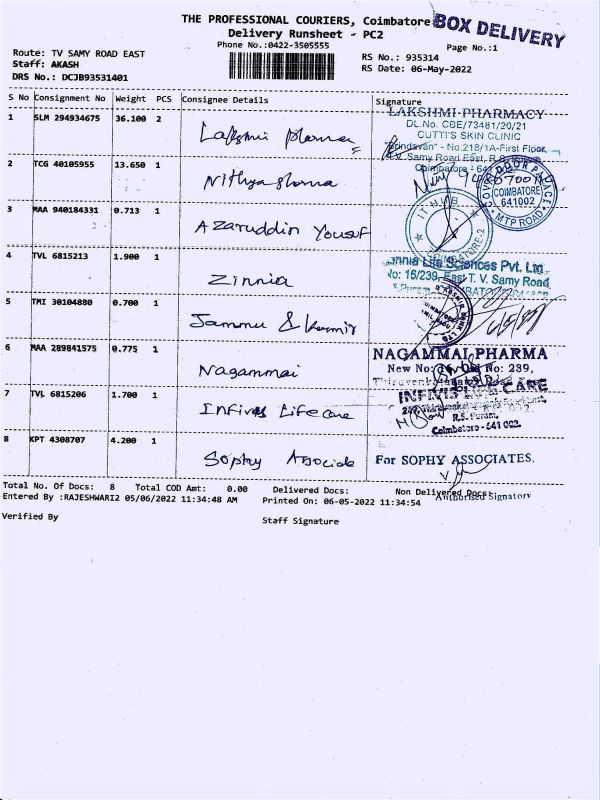 THE PROFESSIONAL COURIERS, Coimbatore
BOX DELIVERY
Delivery Runsheet - PC2
Phone No.:0422-3505555
Page No.:1
Route: TV SAMY ROAD EAST
RS No.: 935314
Staff: AKASH
RS Date: 06-May-2022
DRS No.: DCJB93531401
S No Consignment No Weight PCS Consignee Details Signature
1 SLM 294934675 36.100 2 Lakshmi pharmacy
LAKSHMI PHARMACY
DL.No. CBE/73481/20/21
CUTTI'S SKIN CLINIC
Brindavan" - No.218/1A-First Floor,
T.V. Samy Road East, R.S.
Coimbatore - 641
2 TCG 40105955 13.650 1 Nithyasharma
COVER DOWN PACKAGE
COIMBATORE
641002
MTP ROAD
3 MAA 940184331 0.713 1 Azaruddin Yousuf
IT HUB
COIMBATORE-2
4 TVL 6815213 1.900 1 Zinnia
Zinnia Life Sciences Pvt. Ltd.
No: 16/239, East T. V. Samy Road
5 TMI 30104880 0.700 1 Jammu & Kasmir
6/5/22
6 MAA 289841575 0.775 1 Nagammai
NAGAMMAI PHARMA
New No: Old No: 239,
7 TVL 6815206 1.700 1 Infives Lifecare
INFIVIS LIFE CARE
R.S. Puram,
Coimbatore - 641 002.
8 KPT 4308707 4.200 1 Sophy Associate
For SOPHY ASSOCIATES.
Authorised Signatory
Total No. Of Docs: 8 Total COD Amt: 0.00 Delivered Docs: Non Delivered Docs:
Entered By :RAJESHWARI2 05/06/2022 11:34:48 AM Printed On: 06-05-2022 11:34:54
Verified By
Staff Signature